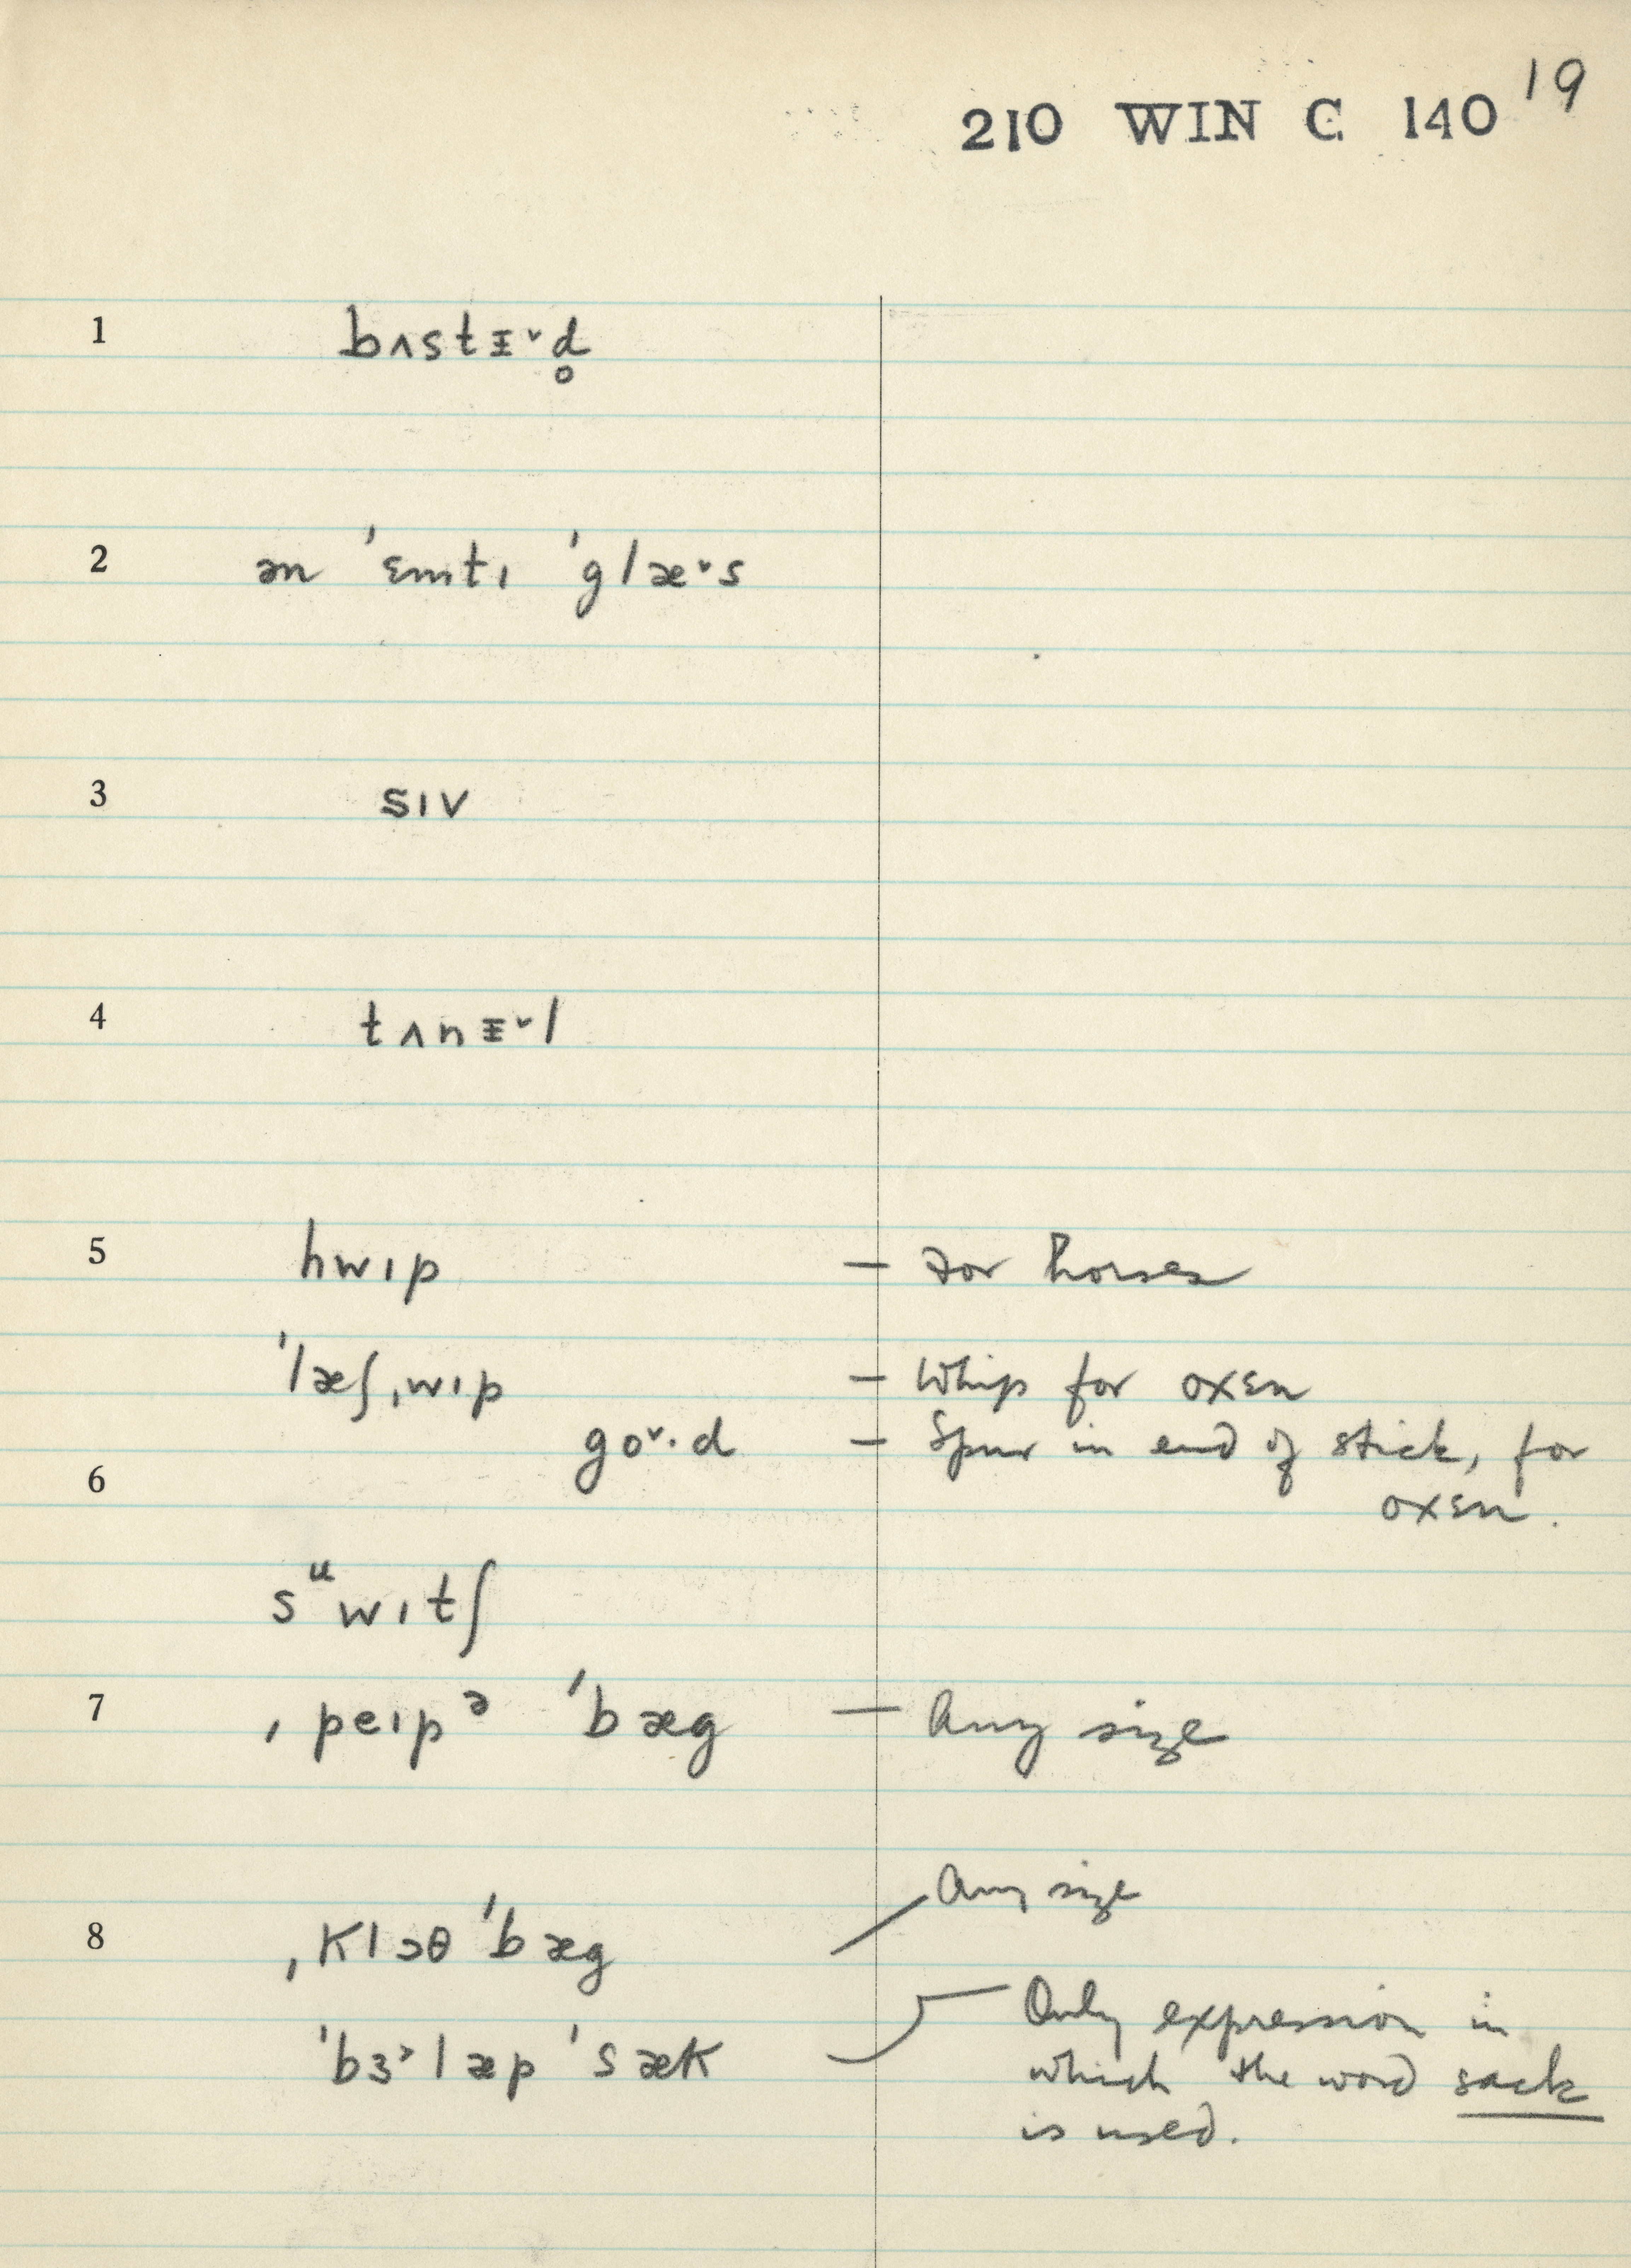 210 WIN C 140 19
1 bʌstɪ̵˅d̥
2 ən 'ɛmtɪ 'glæ˅s
3 sɪv
4 tʌnɪ̵˅l
5 hwɪp — For horses
'læʃˌwɪp — Whip for oxen
go˅·d — Spur in end of stick, for
6 oxen.
sᵘwɪtʃ
7 ˌpeɪpᵊ 'bæg — Any size
Any size
8 ˌklɔθ 'bæg
Only expression in
'bɜ˃læp 'sæk which the word sack
is used.